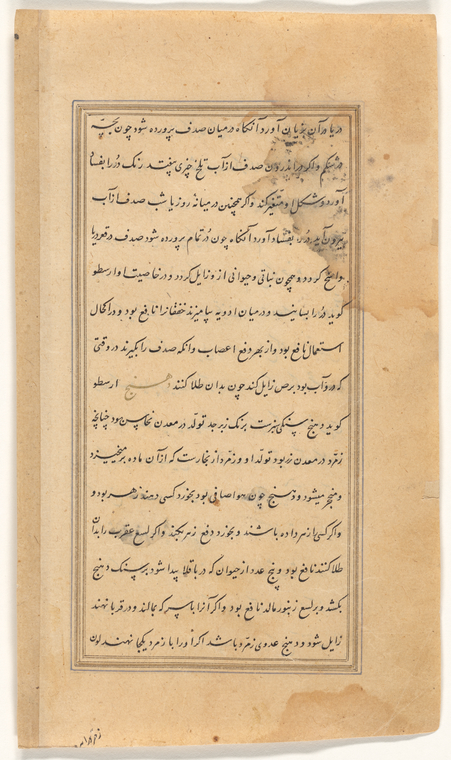 دریا در آن بزیان آورد آنکاه درمیان صدف پرورده شود چون بچّه
در شکم واکر در اندرون صدف از آب تلخ چیزی بیفتد رنک دُر را بفساد
آورد و شکل متغیر کند واکر همچنین در میانه روز یا شب صدف از آب
بیرون آید در را بفساد آورد آنکاه چون دُر تمام پرورده شود صدف در قعر دریا
راسخ کردد وهمچون نباتی وحیوانی از وزایل کردد ودر خاصیت ارسطو
کوید در را بسایند ودر میان ادویه بیامیزند خفقانرا نافع بود ودر اکحال
استعمال نافع بود واز بهر دفع اعصاب وانکه صدف را بکیرند در وقتی
که در و آب بود برص زایل کند چون بدان طلا کنند دهنج ارسطو
کوید دهنج سنکی سبزست برنک زبرجد تولّد در معدن نحاس بود چنانچه
زمّرد در معدن زر بود تولد او وزمرد از بخارست که از آن ماده برمیخیزد
ومنجمد میشود ودهنج چون هوا صافی بود بخورد کسی دهند زهر بود و
واکر کسی را زهر داده باشند و بخورد دفع زهر بکند واکر لسع عقرب را بدان
طلا کنند نافع بود وپنج عدد از حیوان که در باقلا پیدا شود برسنک دهنج
بکشد وبر لسع زنبور مالد نافع بود واکر آنرا با سرکه بمالند ودر قربا نهند
زایل شود و دهنج عدوی زمرّد باشد اکر او را با زمرد یکجا نهند لون